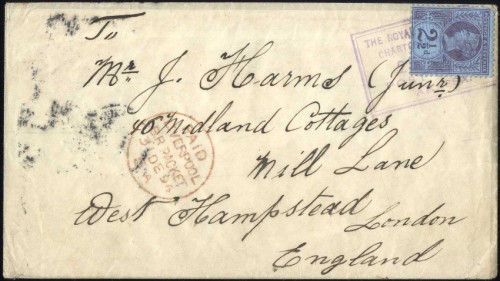 To
Mr J. Harms (Junr)
40 Midland Cottages
Mill Lane
West Hampstead London
England
THE ROYAL
CHART
PAID
LIVERPOOL
BR PACKET
DE
2½